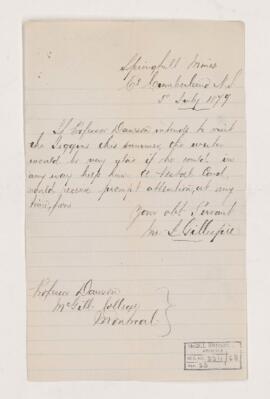 Springhill Mines
Co Cumberland N.S
5 July 1879
If Professor Dawson intends to visit
the Joggins this summer, the writer
would be very glad if he could in
any way help him. A Postal Card,
would receive prompt attention, at any
time, from
Your obt Servant
Gillespie
Professor Dawson
McGill College
Montreal